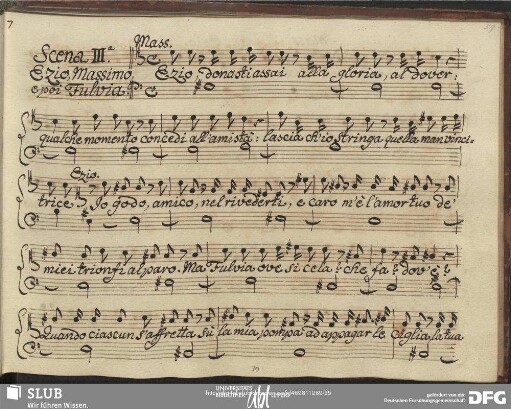 7
Mass.
Scena III.a
Ezio, Massimo,
e poi Fulvia.
Ezio donasti assai alla gloria, al dover:
qualche momento concedi all'amistà: lascia ch'io stringa quella man vinci=
Ezio.
trice. Io godo, amico, nel rivederti, e caro m'è l'amor tuo de'
miei trionfi al paro. Ma Fulvia ove si cela? che fa? dov'è?
Quando ciascun s'affretta su la mia pompa ad appagar le ciglia, la tua
SLUB
Wir führen Wissen.
gefördert von der
Deutschen Forschungsgemeinschaft
DFG